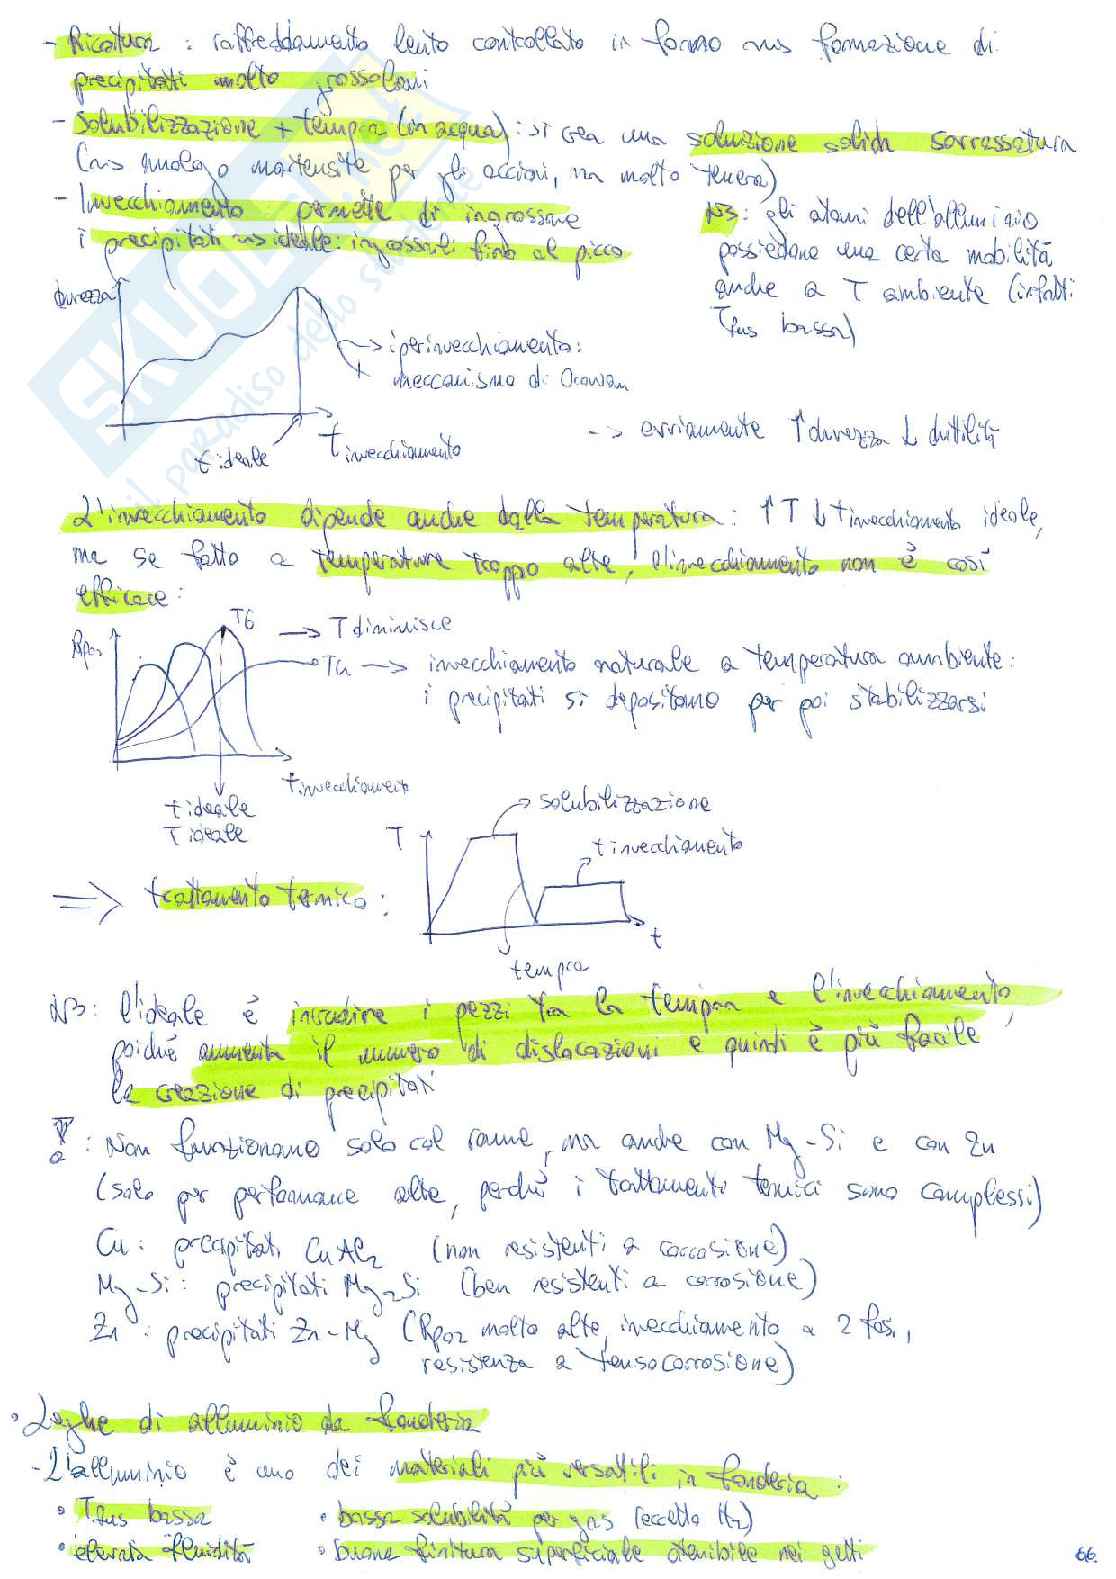 - Ricottura : raffreddamento lento controllato in forno => formazione di
precipitati molto grossolani
- Solubilizzazione + tempra (in acqua): si crea una soluzione solida sovrassatura
(=> analogo martensite per gli acciai, ma molto tenera)
- Invecchiamento permette di ingrossare
i precipitati => ideale: ingrossarli fino al picco
NB: gli atomi dell'alluminio
possiedono una certa mobilità
anche a T ambiente (infatti
Tfus bassa)
durezza
-> iperinvecchiamento:
meccanismo di Orowan
t ideale
t invecchiamento
-> ovviamente ↑ durezza ↓ duttilità
L'invecchiamento dipende anche dalla temperatura: ↑ T ↓ t invecchiamento ideale,
ma se fatto a temperature troppo alte, l'invecchiamento non è così
efficace:
Rp02
T6
-> T diminisce
T4 -> invecchiamento naturale a temperatura ambiente:
i precipitati si depositano per poi stabilizzarsi
t invecchiamento
t ideale
T ideale
solubilizzazione
T
t invecchiamento
=> trattamento termico:
t
tempra
NB: l'ideale è incrudire i pezzi tra la tempra e l'invecchiamento,
poiché aumenta il numero di dislocazioni e quindi è più facile
la creazione di precipitati
: Non funzionano solo col rame, ma anche con Mg-Si e con Zn
(solo per performance alte, perché i trattamenti termici sono complessi)
Cu: precipitati CuAl2 (non resistenti a corrosione)
Mg-Si: precipitati Mg2Si (ben resistenti a corrosione)
Zn : precipitati Zn-Mg (Rp02 molto alte, invecchiamento a 2 fasi,
resistenza a tensocorrosione)
• Leghe di alluminio da fonderia
- L'alluminio è uno dei materiali più versatili in fonderia:
• Tfus bassa • bassa solubilità per gas (eccetto H2)
• elevata fluidità • buona finitura superficiale ottenibile nei getti
66.
SKUOLA.net
il paradiso dello studente